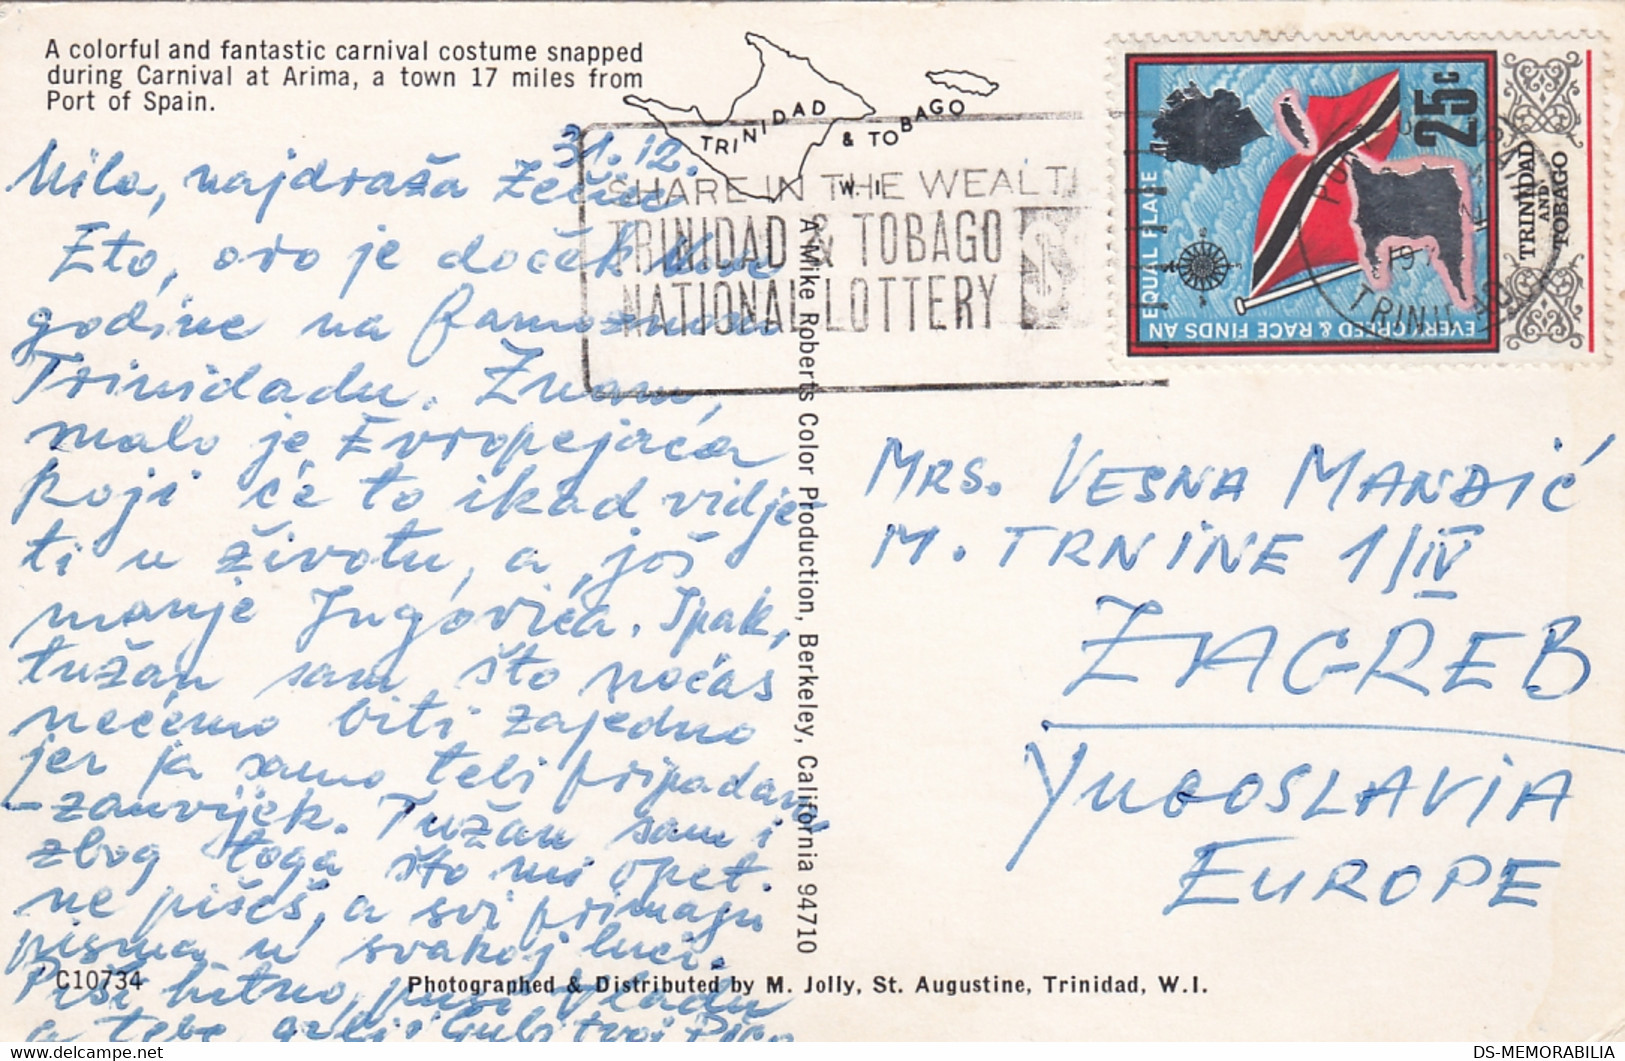 A colorful and fantastic carnival costume snapped
during Carnival at Arima, a town 17 miles from
Port of Spain.
TRINIDAD
& TOBAGO
W.I.
SHARE IN THE WEALTH
TRINIDAD & TOBAGO
NATIONAL LOTTERY
25c
TRINIDAD
AND
TOBAGO
EVERY CREED & RACE FINDS AN
EQUAL PLACE
TRINIDAD
31. 12.
Mila, najdraža Zečice
Eto, ovo je doček Nove
godine na famoznom
Trinidadu. Znam,
malo je Evropejaca
koji će to ikad vidje-
ti u životu, a još
manje Jugovića. Ipak,
tužan sam što noćas
nećemo biti zajedno
jer ja samo tebi pripadam
- zauvijek. Tužan sam i
zbog toga što mi opet
ne pišeš, a svi primaju
pisma u svakoj luci.
Piši hitno, pusi Vladu
a tebe grli i ljubi tvoj
A Mike Roberts Color Production, Berkeley, California 94710
MRS. VESNA MANDIĆ
M. TRNINE 1/IV
ZAGREB
YUGOSLAVIA
EUROPE
C10734
Photographed & Distributed by M. Jolly, St. Augustine, Trinidad, W.I.
delcampe.net
DS-MEMORABILIA